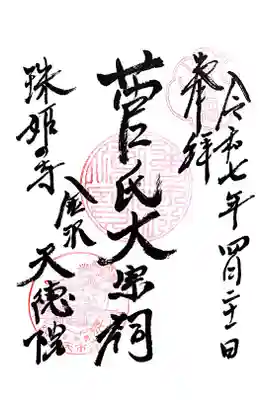 奉拝
令和七年四月二十一日
菅氏大宗祠
珠姫の寺
金沢 天徳院